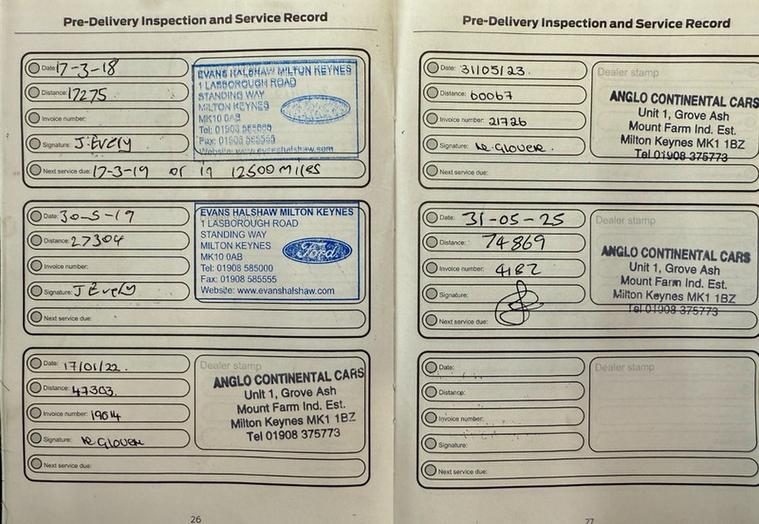 Pre-Delivery Inspection and Service Record
Date: 17-3-18
Distance: 17275
Invoice number:
Signature: J. Evely
Next service due: 17-3-19 or in 12500 miles
EVANS HALSHAW MILTON KEYNES
1 LASBOROUGH ROAD
STANDING WAY
MILTON KEYNES
MK10 0AB
Tel: 01908 585000
Fax: 01908 585555
Website: www.evanshalshaw.com
Date: 30-5-19
Distance: 27304
Invoice number:
Signature: J Evely
Next service due:
EVANS HALSHAW MILTON KEYNES
1 LASBOROUGH ROAD
STANDING WAY
MILTON KEYNES
MK10 0AB
Tel: 01908 585000
Fax: 01908 585555
Website: www.evanshalshaw.com
Ford
Date: 17/01/22.
Distance: 47303.
Invoice number: 19614
Signature: R. Glover
Next service due:
Dealer stamp
ANGLO CONTINENTAL CARS
Unit 1, Grove Ash
Mount Farm Ind. Est.
Milton Keynes MK1 1BZ
Tel 01908 375773
26
Pre-Delivery Inspection and Service Record
Date: 31/05/23.
Distance: 60067
Invoice number: 21726
Signature: R. Glover.
Next service due:
Dealer stamp
ANGLO CONTINENTAL CARS
Unit 1, Grove Ash
Mount Farm Ind. Est.
Milton Keynes MK1 1BZ
Tel 01908 375773
Date: 31-05-25
Distance: 74869
Invoice number: 4182
Signature:
Next service due:
Dealer stamp
ANGLO CONTINENTAL CARS
Unit 1, Grove Ash
Mount Farm Ind. Est.
Milton Keynes MK1 1BZ
Tel 01908 375773
Date:
Distance:
Invoice number:
Signature:
Next service due:
Dealer stamp
27